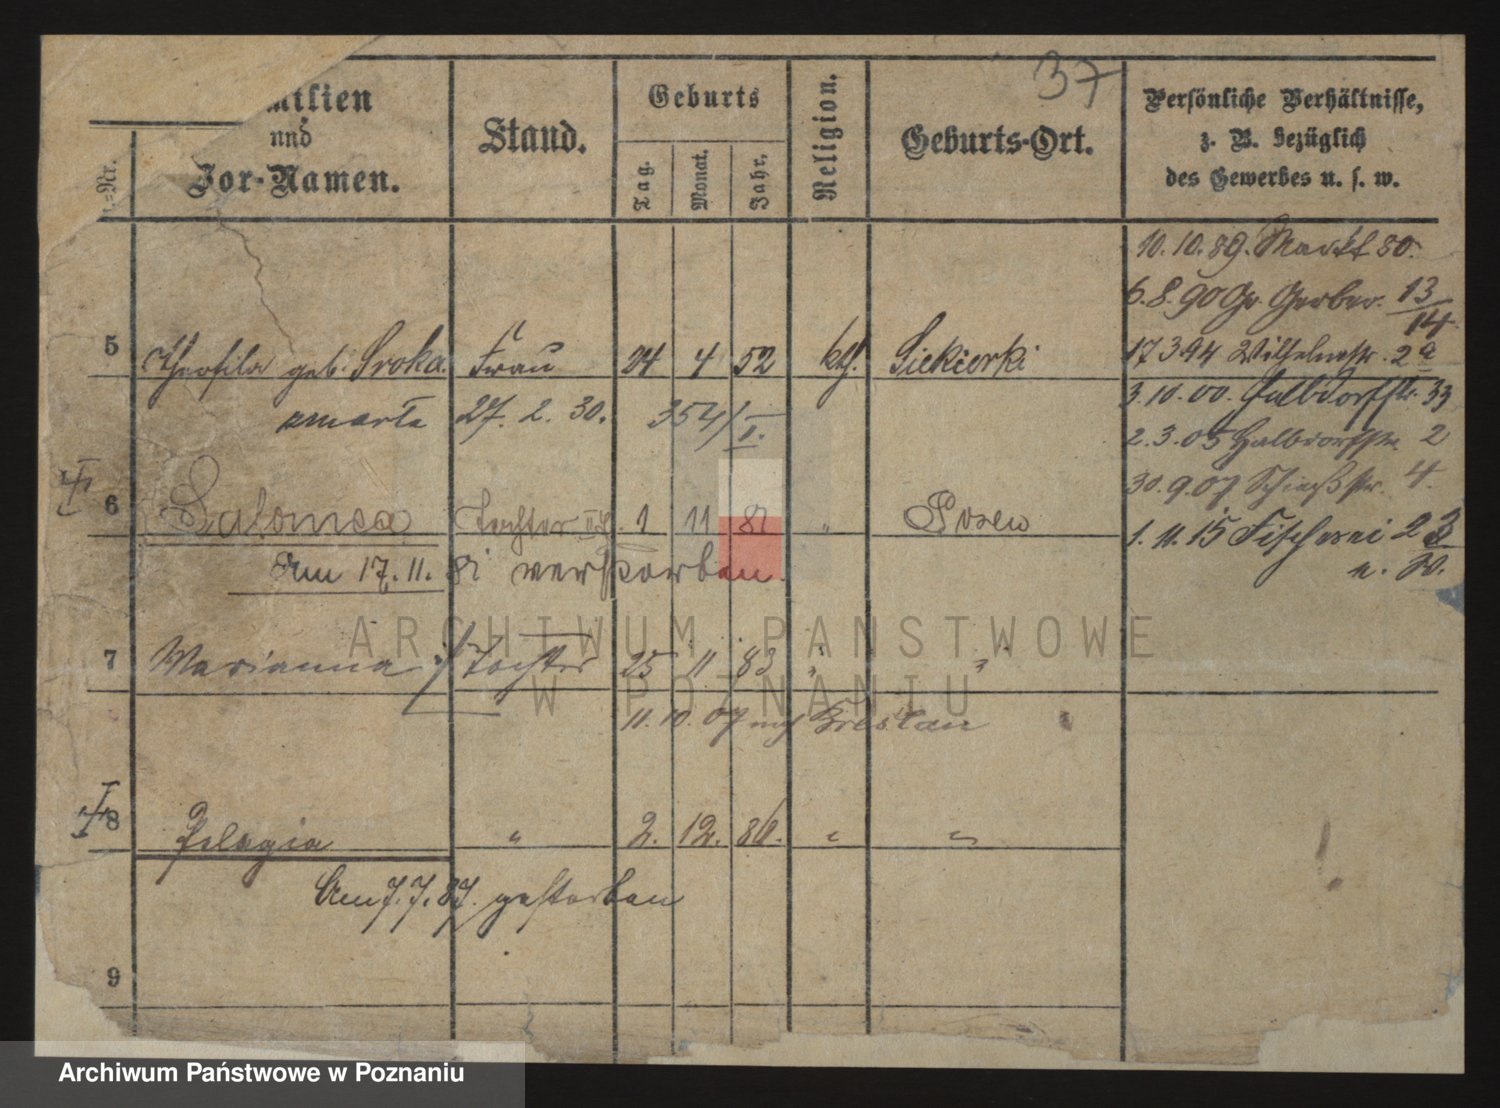 37
Familien und Vor-Namen.
Stand.
Geburts
Tag.
Monat.
Jahr.
Religion.
Geburts-Ort.
Persönliche Verhältnisse, z. B. bezüglich des Gewerbes u. s. w.
10. 10. 89. Markt 80.
6. 8. 90 Gr. Gerber. 13/14
17 3 94 Wilhelmstr. 2a
3. 10. 00. Halbdorfstr. 33
2. 3. 05 Halbdorfstr 2
30. 9. 07 Schießstr. 4.
1. 11. 15 Fischerei 23
5 Theofila geb. Sroka. Frau 24 4 52 kth. Siekierki
zmarła 27. 2. 30. 354/II.
6 Salomea Tochter 1 11 81 " Posen
Am 17. 11. 81 verstorben.
7 Marianna Tochter 25 11 83 " "
11. 10. 07 nach Breslau
8 Pelagia " 2. 12. 86. " "
Am 7. 7. 87. gestorben
9
ARCHIWUM PAŃSTWOWE
W POZNANIU
Archiwum Państwowe w Poznaniu